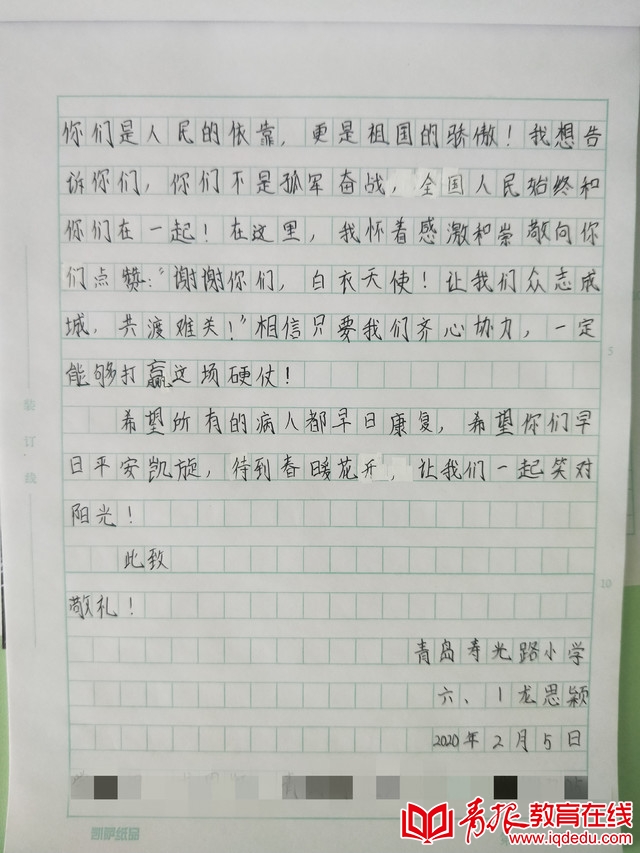 你们是人民的依靠，更是祖国的骄傲！我想告
诉你们，你们不是孤军奋战，全国人民始终和
你们在一起！在这里，我怀着感激和崇敬向你
们点赞:“谢谢你们，白衣天使！让我们众志成
城，共渡难关！”相信只要我们齐心协力，一定
能够打赢这场硬仗！
希望所有的病人都早日康复，希望你们早
日平安凯旋，待到春暖花开，让我们一起笑对
阳光！
此致
敬礼！
青岛寿光路小学
六、1龙思颖
2020年2月5日
装订线
5
10
青报教育在线
www.iqdedu.com